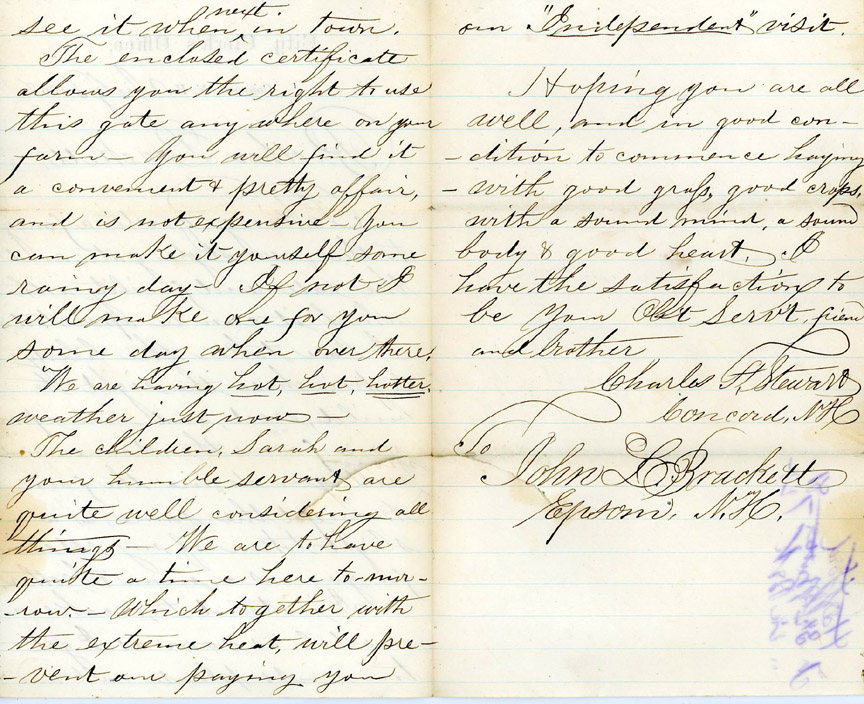 see it when next in town.
The enclosed certificate
allows you the right to use
this gate any where on your
farm – You will find it
a convenient & pretty affair,
and is not expensive – You
can make it yourself some
rainy day – If not I
will make one for you
some day when over there.
We are having hot, hot, hotter,
weather just now –
The children, Sarah and
your humble servant are
quite well considering all
things – We are to have
quite a time here to-mor-
-row – Which together with
the extreme heat, will pre-
-vent our paying you
an "Independent" visit.
Hoping you are all
well, and in good con-
-dition to commence haying
- with good grass, good crops,
with a sound mind, a sound
body & good heart, I
have the satisfaction to
be your Obt Servt, friend
and brother
Charles F. Stewart
Concord, NH
To
John L. Brackett
Epsom, N.H.